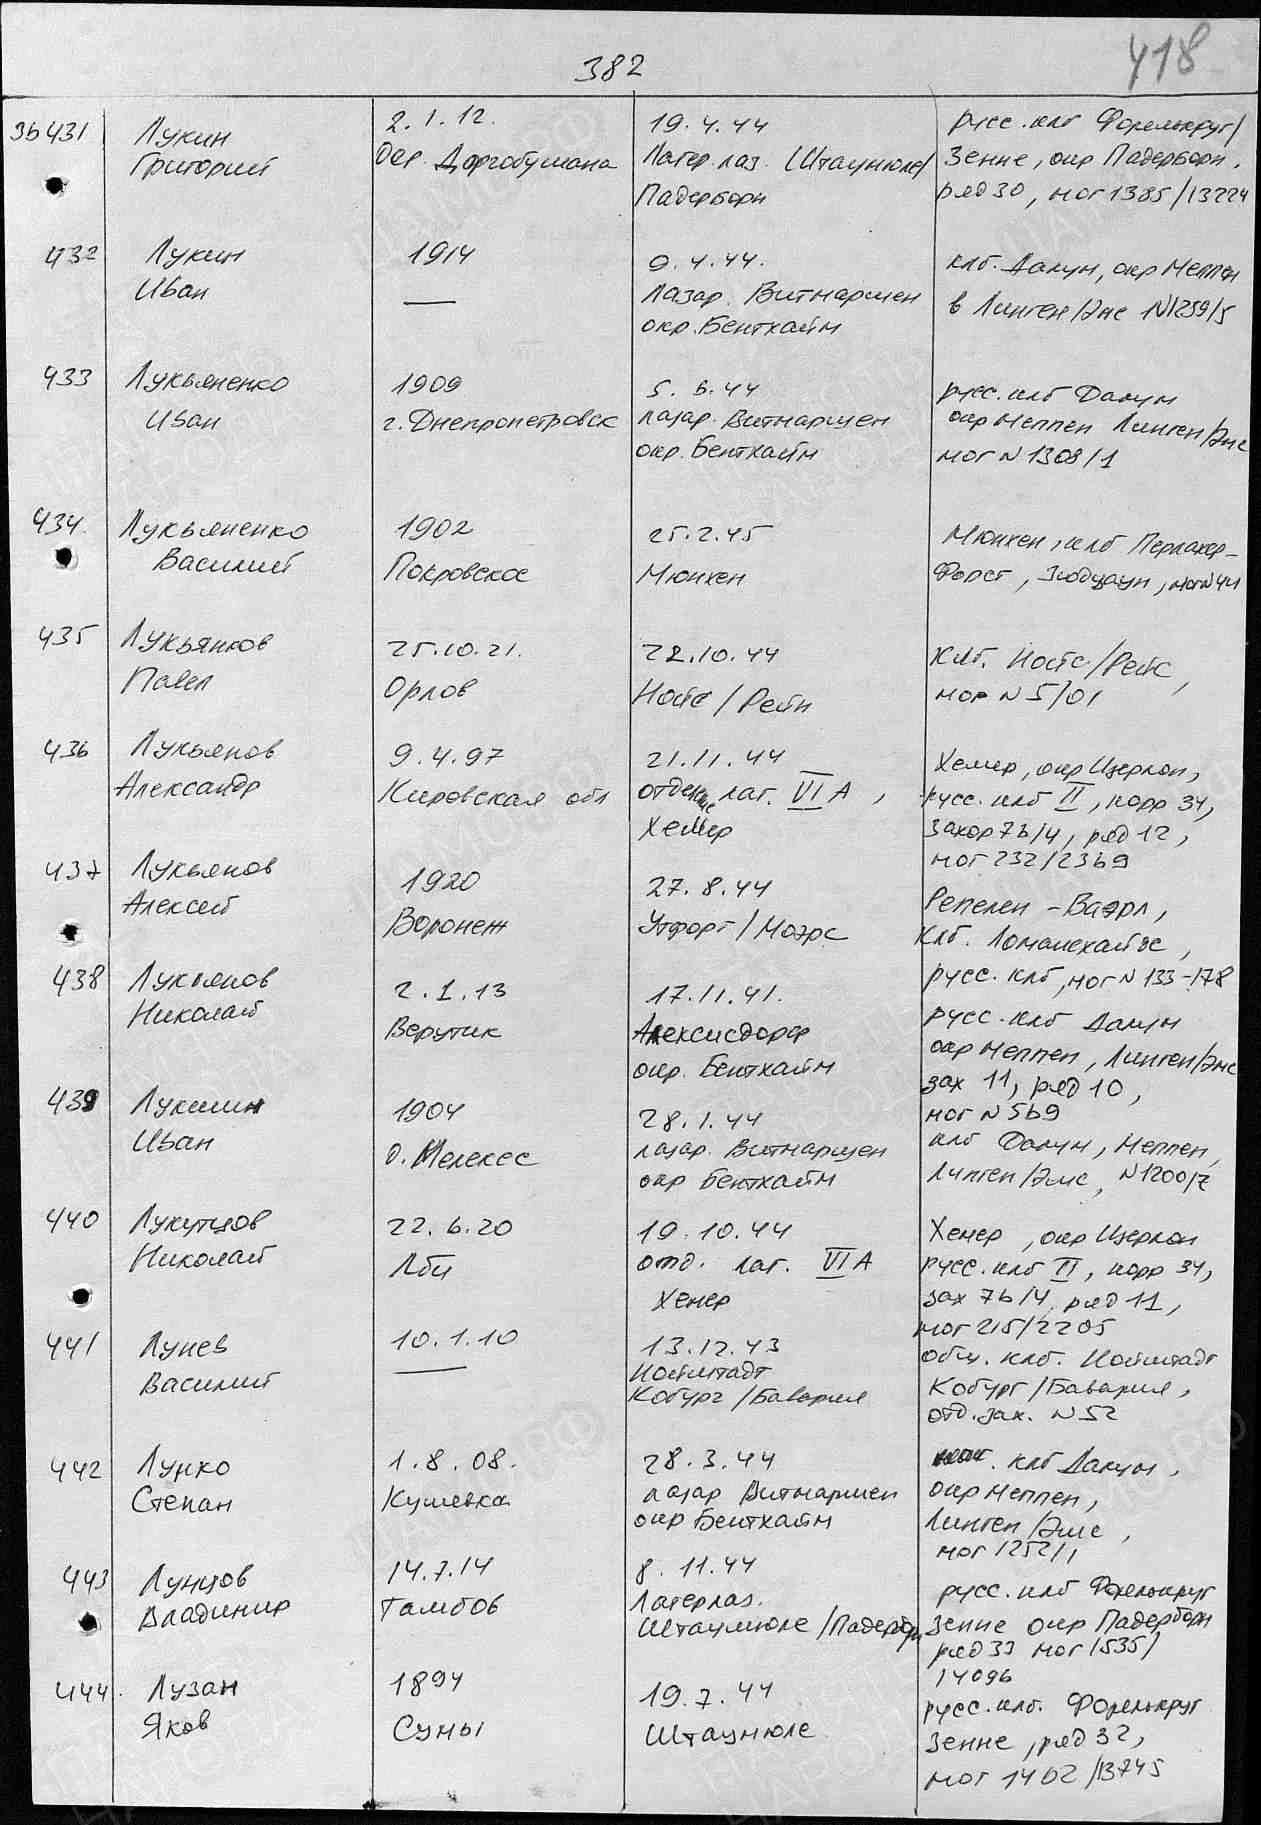 382
418
36431
Лукин
Григорий
2.1.12.
дер. Доргобушана
19.4.44
Лагер. лаз. Штаумюле/
Падерборн
русс. клб Форелькруг/
Зенне, окр Падерборн,
ряд 30, мог 1385/13224
432
Лукин
Иван
1914
—
9.4.44.
лазар. Витмаршен
окр. Бентхайм
клб. Далум, окр Меппен
в Линген/Эмс N1259/5
433
Лукьяненко
Иван
1909
г. Днепропетровск
5.6.44
лазар. Витмаршен
окр. Бентхайм
русс. клб Далум
окр Меппен Линген/Эмс
мог N 1308/1
434.
Лукьяненко
Василий
1902
Покровское
25.2.45
Мюнхен
Мюнхен, клб Перлахер-
Форст, мог N 44
435
Лукьянков
Павел
25.10.21.
Орлов
22.10.44
Нойс/Рейн
клб. Нойс/Рейн,
мог N 5/01
436
Лукьянов
Александр
9.4.97
Кировская обл
21.11.44
отдел. лаг. VI A,
Хемер
Хемер, окр Изерлон,
русс. клб II, корр 34,
захор 76/4, ряд 12,
мог 232/2369
437
Лукьянов
Алексей
1920
Воронеж
27.8.44
Утфорт/Моэрс
Репелен-Баэрл,
клб. Ломанхайде,
русс. клб, мог N 133-178
438
Лукьянов
Николай
2.1.13
Верутик
17.11.41.
Алексисдорф
окр. Бентхайм
русс. клб Далум
окр Меппен, Линген/Эмс
зах 11, ряд 10,
мог N 569
439
Лукшин
Иван
1904
о. Мелекес
28.1.44
лазар. Витмаршен
окр Бентхайм
клб Далум, Меппен,
Линген/Эмс, N1200/7
440
Лукутцов
Николай
22.6.20
Лби
19.10.44
отд. лаг. VI A
Хемер
Хемер, окр Изерлон
русс. клб II, корр 34,
зах 76/4, ряд 11,
мог 215/2205
441
Лунев
Василий
10.1.10
—
13.12.43
Нойштадт
Кобург/Бавария
общ. клб. Нойштадт
Кобург/Бавария,
отд. зах. N 52
442
Лунко
Степан
1.8.08.
Кушевка
28.3.44
лазар Витмаршен
окр Бентхайм
клб Далум,
окр Меппен,
Линген/Эмс,
мог 1252/1
443
Лунцов
Владимир
14.7.14
Тамбов
8.11.44
Лагерлаз.
Штаумюле/Падерборн
русс. клб Форелькруг
Зенне окр Падерборн
ряд 33 мог 1535/
14096
444.
Лузан
Яков
1894
Сумы
19.7.44
Штаумюле
русс. клб. Форелькруг
Зенне, ряд 32,
мог 1462/13745